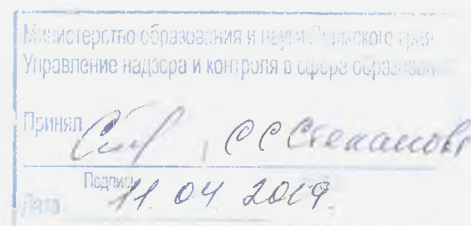 Министерство образования и науки Пермского края
Управление надзора и контроля в сфере образования
Принял
С С Степанова
Подпись
11. 04 2019.
Дата